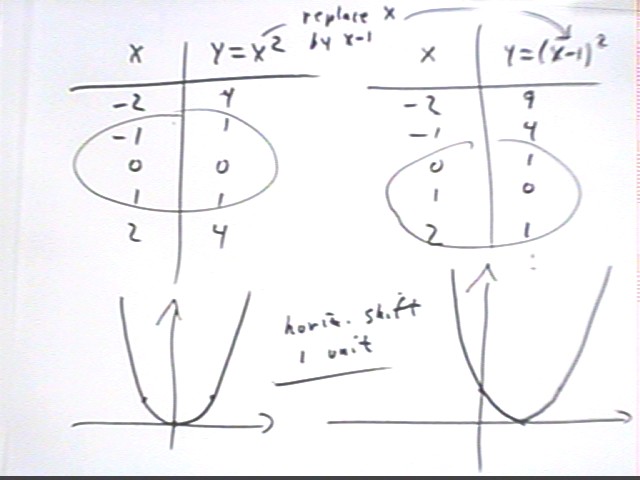 replace x
by x-1
x y=x²
-2 4
-1 1
0 0
1 1
2 4
x y=(x-1)²
-2 9
-1 4
0 1
1 0
2 1
:
horiz. shift
1 unit